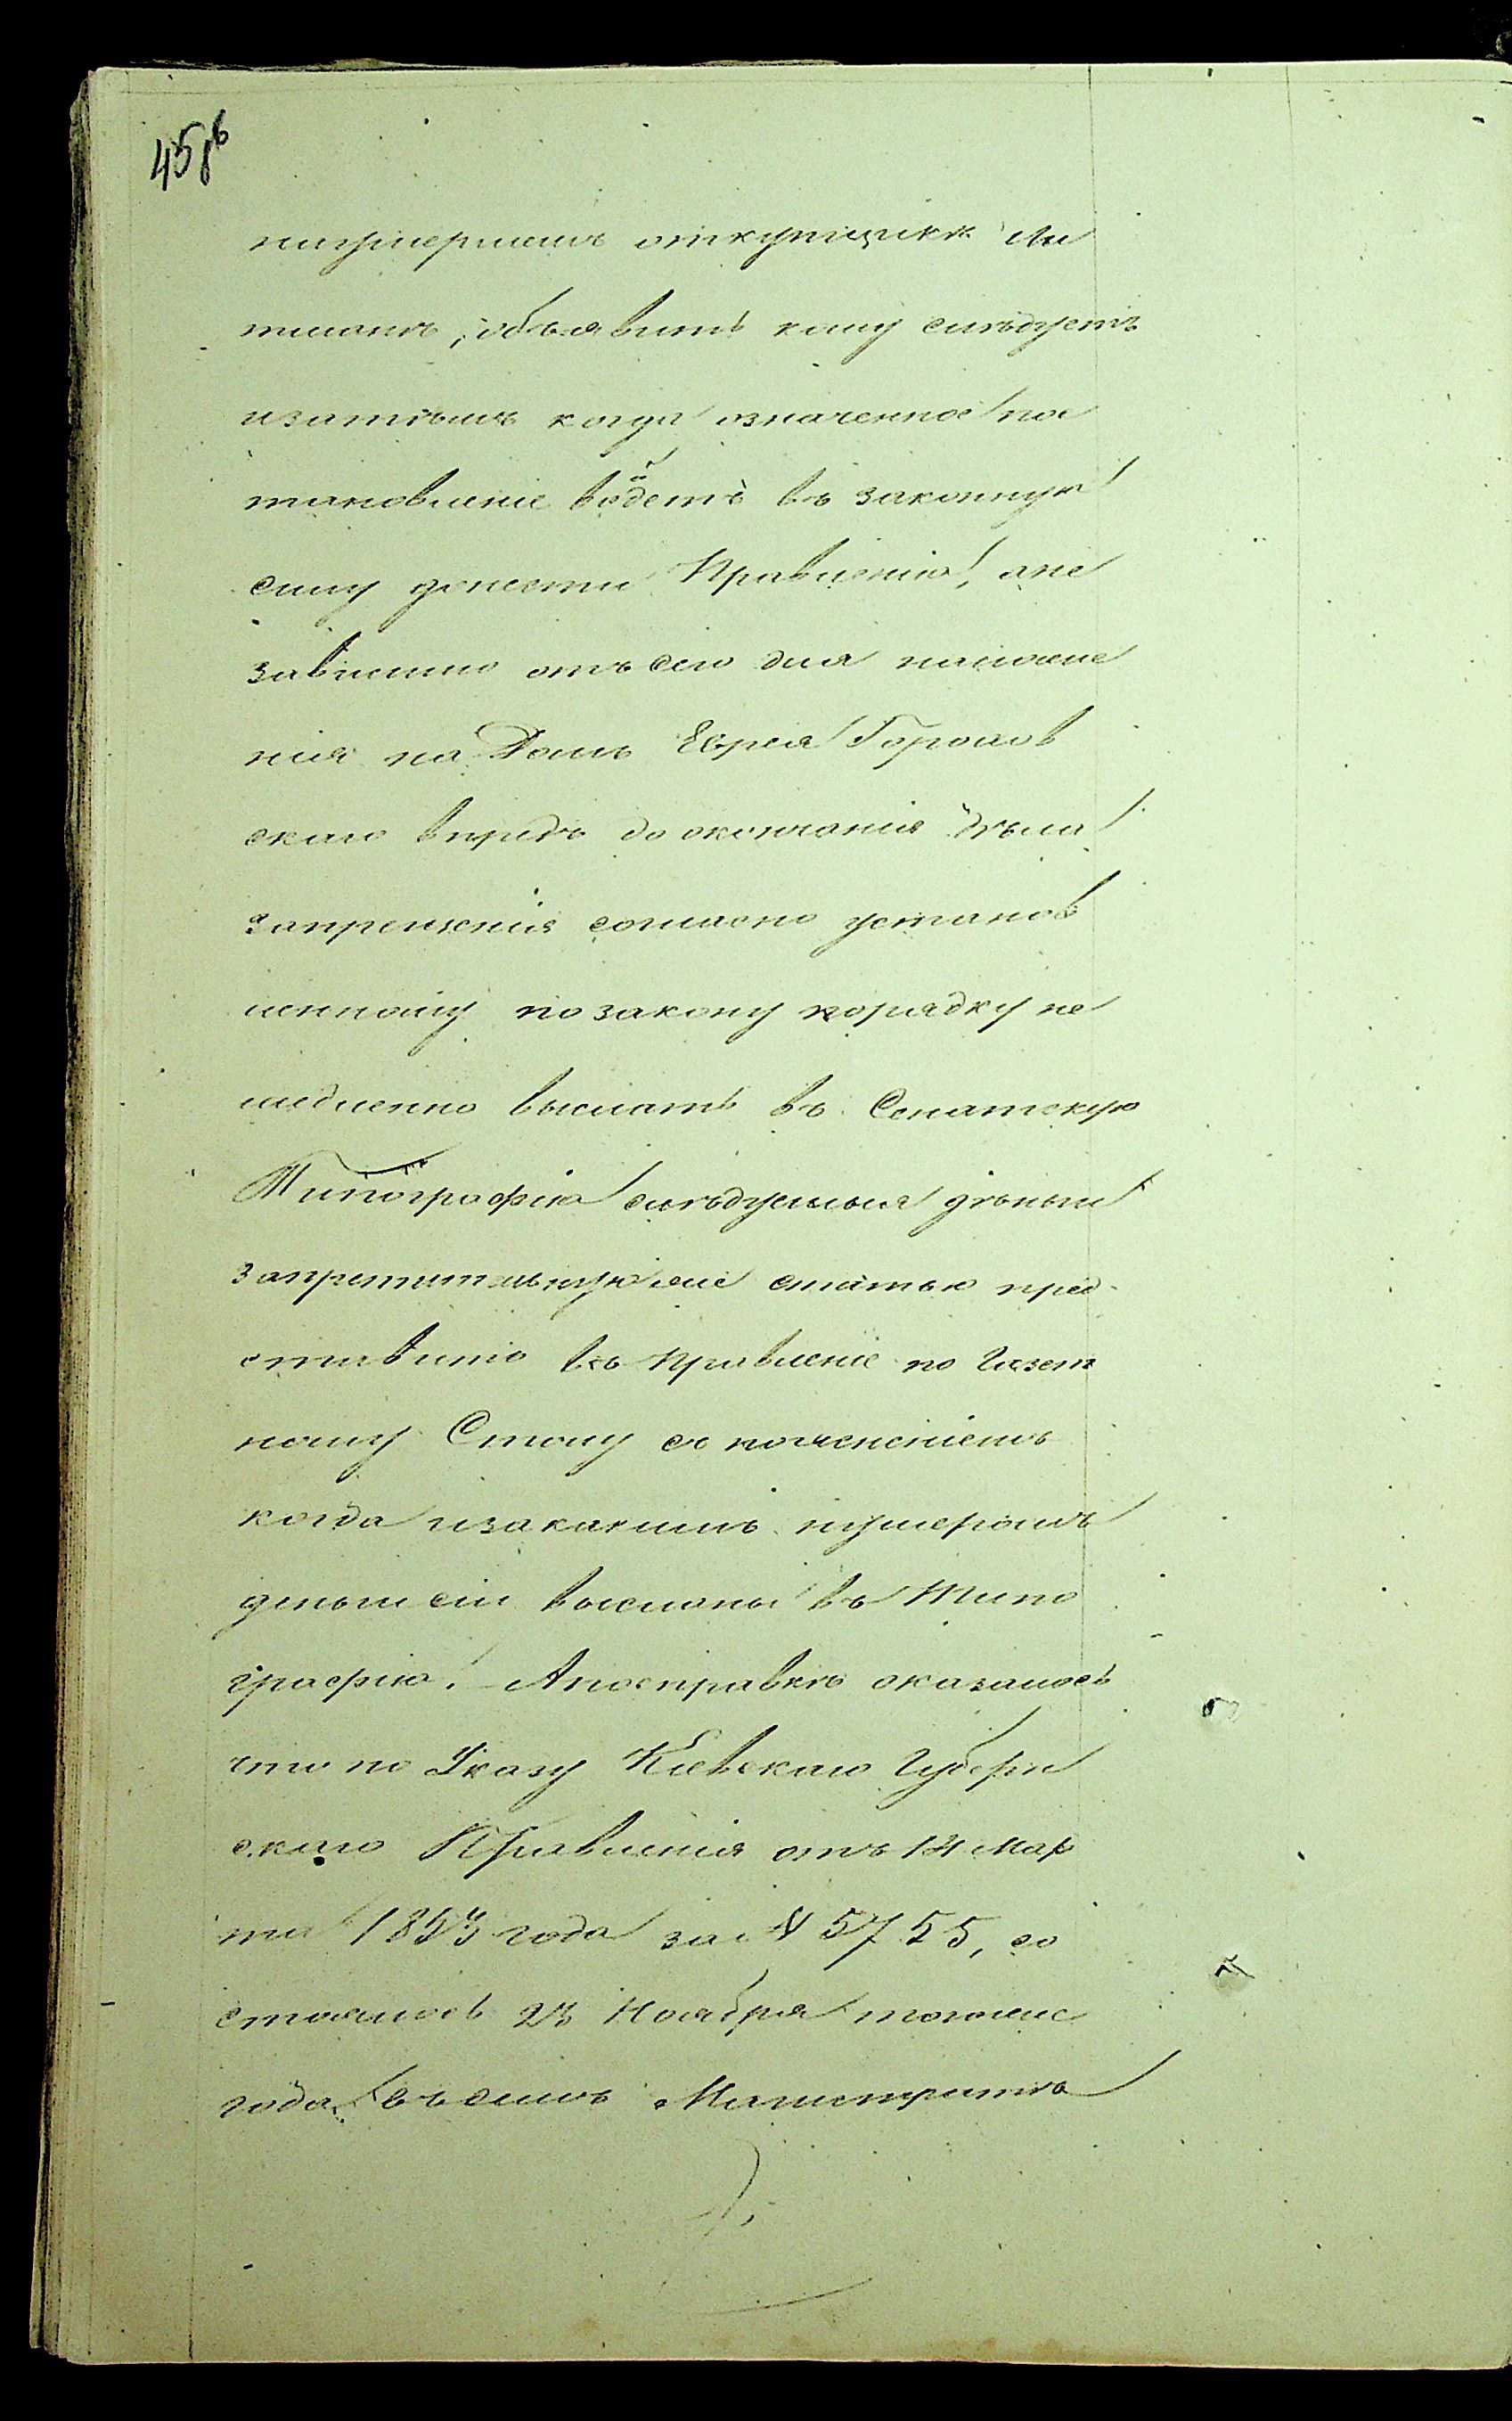 458в
нумерамъ откупщикк Ли
тманъ, объявить кому слѣдуетъ
изатѣмъ когда означенное пос
тановленіе войдетъ въ законную
силу донести Правленію, ане
зависимо отъ сего для наложе
нія на Домъ Еврея Горохов
скаго впредь до окончанія дѣла
запрещенія согласно установ
ленному позакону порядку не
медленно выслать въ Сенатскую
Типографію слѣдуемыя деньги
запретительную же статью пред
ставить въ Правленіе по Газет
ному Столу съ поясненіемъ
когда изакакимъ нумеромъ
деньги сіи высланы въ Типо
графію. Апосправкѣ оказалось
что по Указу Кіевскаго Губерн
скаго Правленія отъ 14 Мар
та 1853 года за № 5755, со
стоялось 23 Ноября тогоже
года въ семъ Магистратѣ